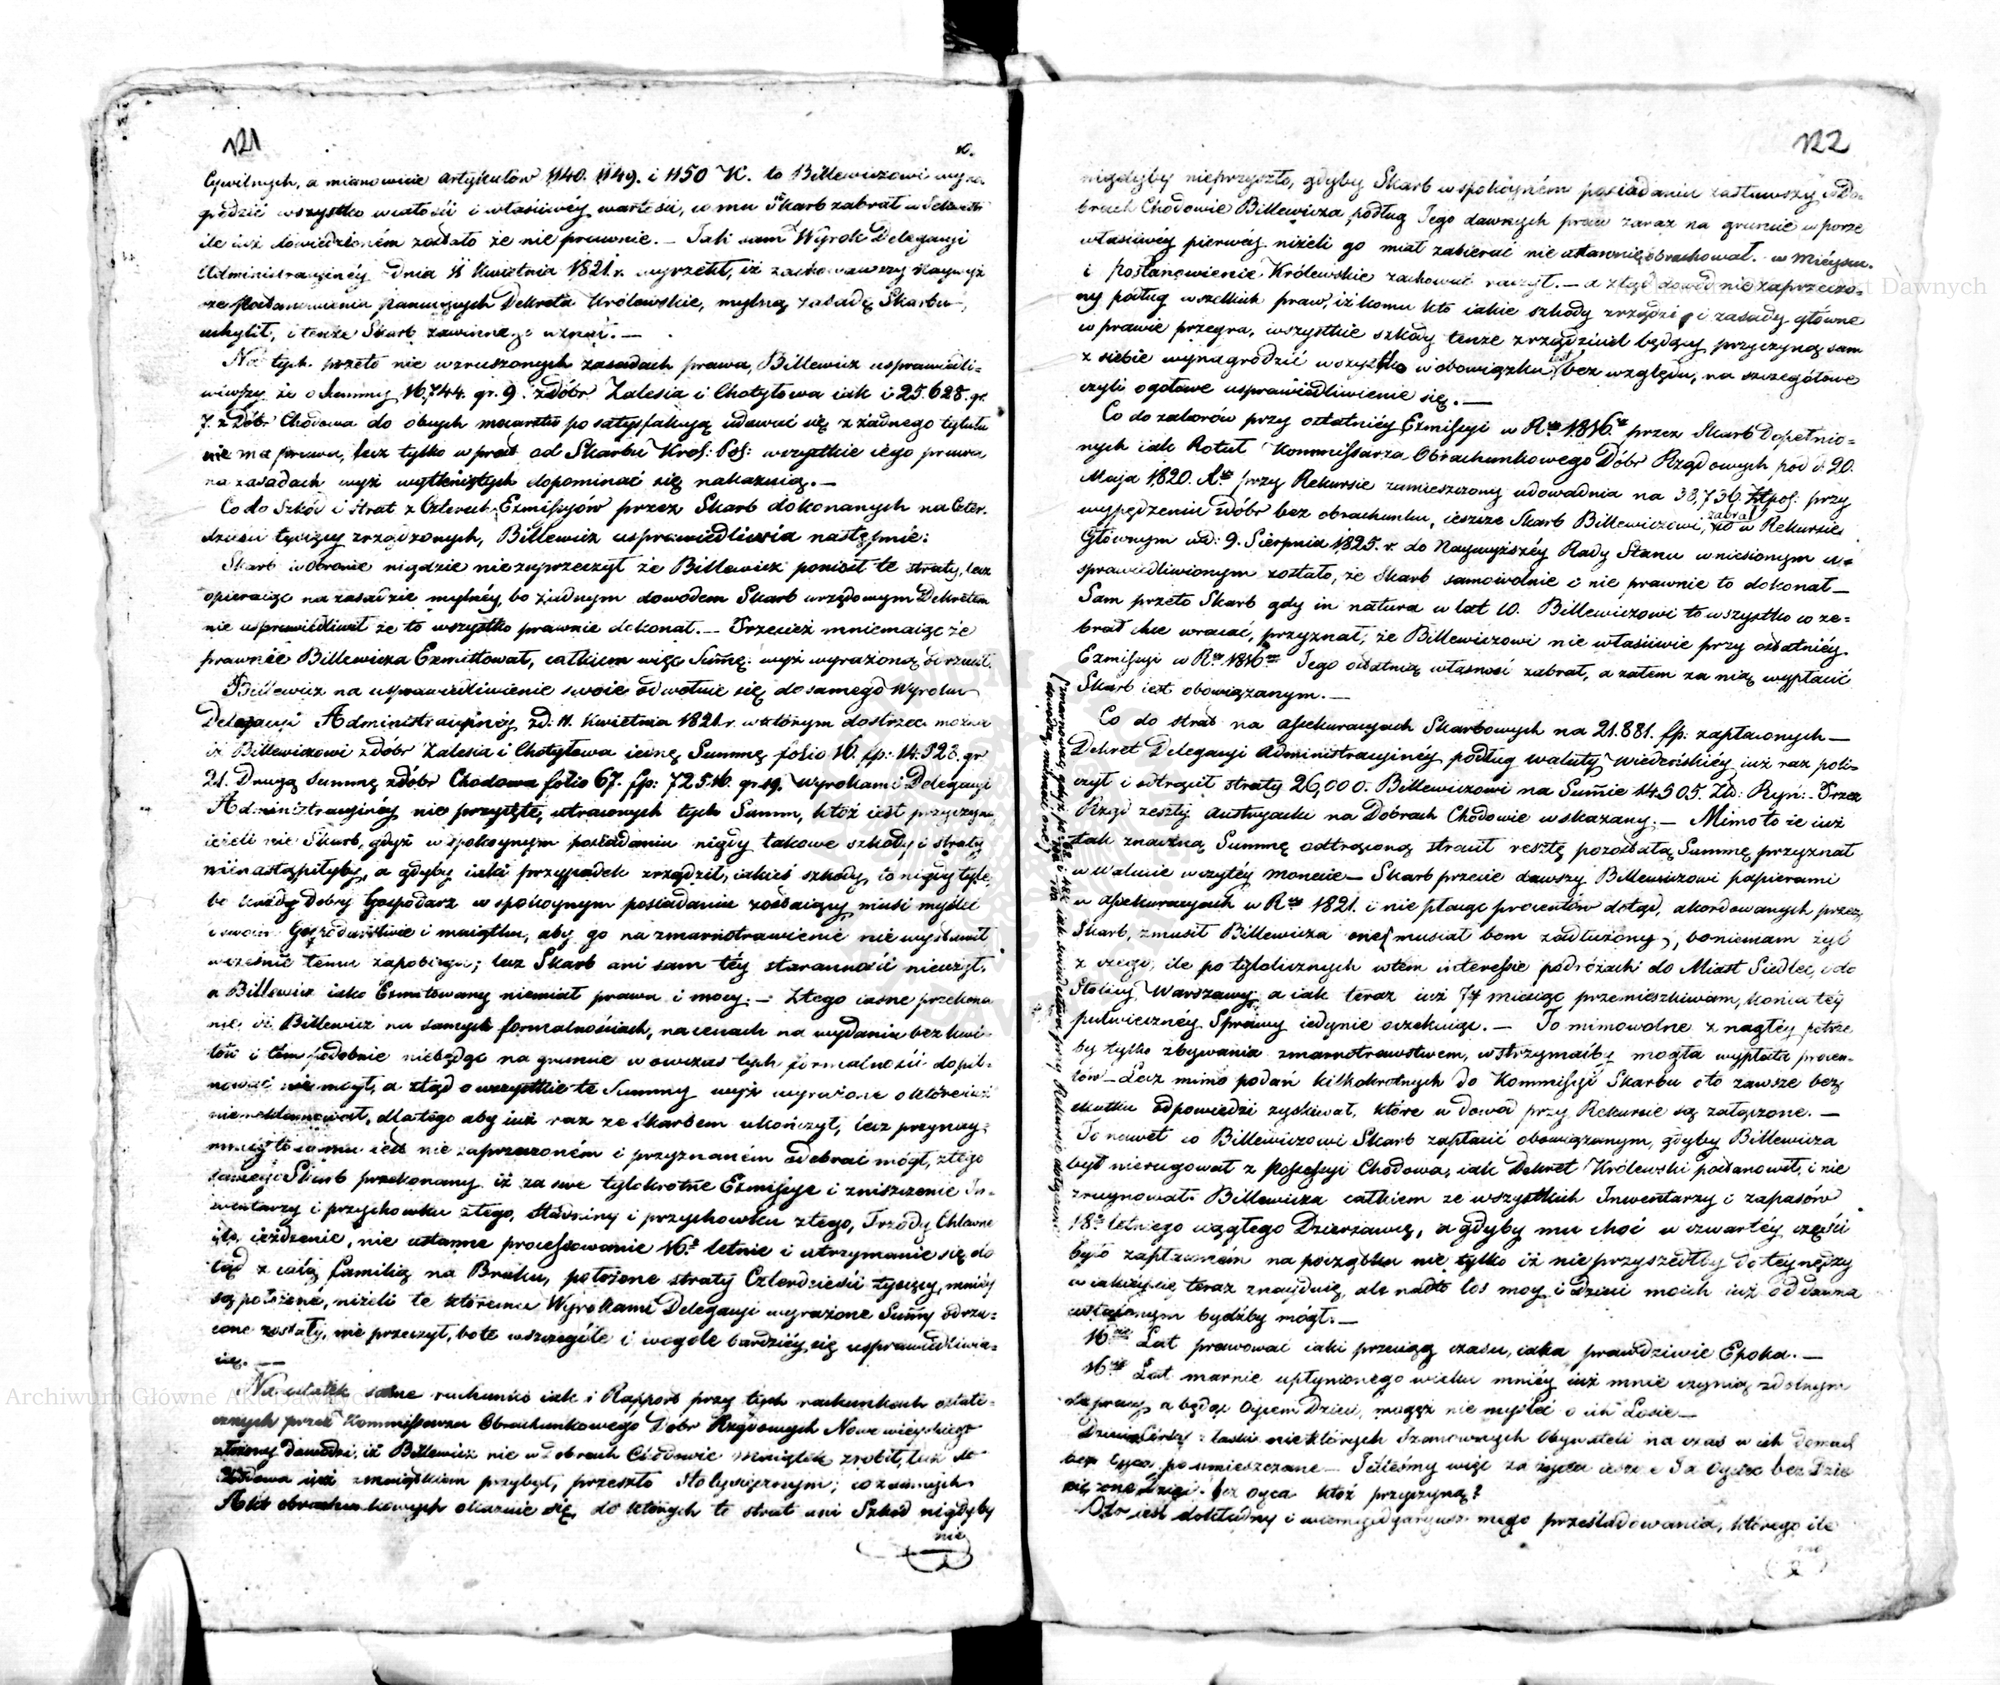 121
10.
Cywilnych, a mianowicie artykułów 1140. 1149. i 1150 K. to Billewiczowi wyna-
grodzić wszystko w całości i właściwéy wartości, co mu Skarb zabrał
ile iuż dowiedzioném zostało że nie prawnie. — Jak sam Wyrok Delegacyi
Administracyinéy dnia 11 Kwietnia 1821. r. wyrzekł, iż zachowawszy Naywyż
sze Postanowienia panuiących Dekreta Królewskie, mylną zasadę Skarbu
uchylił, i tenże Skarb zawinnego uznał. —
Na tych przeto nie wzruszonych zasadach prawa, Billewicz usprawiedli-
wiwszy, że o Summy 16,744. gr. 9. z dóbr Zalesia i Chotyłowa iak i 25.628. gr.
7. z Dóbr Chodowa do obuych mocarstw po satysfakcyą udawać się z żadnego tytułu
nie ma prawa, lecz tylko wprost od Skarbu Król: Pol: wszystkie iego prawa
na zasadach wyż wytkniętych dopominać się nakazuią. —
Co do Szkód i Strat z Czterech Exmissyów przez Skarb dokonanych na Czter-
dzieści tysięcy zrządzonych, Billewicz usprawiedliwia następnie:
Skarb w obronie nigdzie nie zaprzeczył że Billewicz poniósł te straty, lecz
opieraiąc na zasadzie mylnéy, bo żadnym dowodem Skarb urzędowym Dekretem
nie usprawiedliwił że to wszystko prawnie dokonał. — Przecież mniemaiąc że
prawnie Billewicza Exmittował, całkiem więc Summę wyż wyrażoną odrzucił.
Billewicz na usprawiedliwienie swoie odwołuie się do samego Wyroku
Delegacyi Administracyinéy z d: 11. Kwietnia 1821 r. w którym dostrzec można
iż Billewiczowi z dóbr Zalesia i Chotyłowa iednę Summę folio 16. fp: 14.928. gr
21. Drugą Summę z dóbr Chodowa folio 67. fp: 72516 gr. 19. Wyrokami Delegacyi
Administracyinéy nie przyiętę, utraconych tych Summ, któż iest przyczyną
ieżeli nie Skarb, gdyż w spokoynym posiadaniu nigdy takowe szkody i straty
nienastąpiłyby, a gdyby iaki przypadek zrządził, iakieś szkody, to nigdy tyle,
bo każdy Dobry Gospodarz w spokoynym posiadaniu zostaiący, musi myśleć
o swoim Gospodarstwie i maiątku, aby go na zmarnotrawienie nie wystawił
wcześnie temu zapobiega; lecz Skarb ani sam téy staranności nieużył,
a Billewicz iako Exmitowany niemiał prawa i mocy. — Ztego iasne przekona
nie, iż Billewicz na samych formalnościach, na cenach na wydania bez kwi-
tów i tém podobnie niebędąc na gruncie w owczas tych formalności dopil-
nować nie mógł, a ztąd o wszystkie te Summy wyż wyrażone o które iuż
niereklamował, dlatego aby iuż raz ze Skarbem ukończył, lecz przynay-
mniéy to co mu iest nie zaprzeczoném i przyznaném odebrać mógł, z tego
samego Skarb przekonany iż za swe tylokrotne Exmissye i zniszczenie In-
wentarzy i przychowku ztego, Stadniny i przychowku ztego, Trzody Chlewne
iéy, ieżdzenie, nie ustanne processowanie 16to letnie i utrzymanie się do
tąd z całą familią na Bruku, położone straty Czterdzieści tysięcy, mniéy
są położone, niżeli te któremu Wyrokami Delegacyi wyrażone Summy odrzu-
cone zostały, nie przeczył, bo te w szczególe i wogóle bardziéy się usprawiedliwia-
ią. —
Na ostatek same rachunki iak i Rapport przy tych rachunkach ostate-
cznych przez Kommissarza Obrachunkowego Dóbr Rządowych Nowowieyskiego
złożony dowodzi, iż Billewicz nie w dobrach Chodowie maiątek zrobił, lecz do
Chodowa iuż z maiątkiem przybył, przeszło stotysięcznym; co z samych
Akt obrachunkowych okazuie się, do których te strat ani Szkód nigdyby
nie
122
nigdyby nieprzyszło, gdyby Skarb w spokoyném posiadaniu zastawszy w Do-
brach Chodowie Billewicza podług Jego dawnych praw zaraz na gruncie w porze
właściwéy pierwéy niżeli go miał zabierać nie ustawnie obrachował. w mieyscu
i Postanowienie Królewskie zachować raczył. — a ztąd dowód nie zaprzeczo-
ny podług wszelkich praw, iż komu kto iakie szkody zrządzi i zasady główne
w prawie przegra, wszystkie szkody tenże zrządziciel będący przyczyną sam
z siebie wynagrodzić wszystko w obowiązku iest bez względu, na szczegółowe
czyli ogółowe usprawiedliwienie się. —
Co do zaborów przy ostatniéy Exmissyi w Rku 1816m przez Skarb Dopełnio-
nych iak Rotuł Kommissarza Obrachunkowego Dóbr Rządowych pod d. 20.
Maja 1820. Rku przy Rekursie zamieszczony udowadnia na 38,736. Złpol: przy
wypędzeniu z dóbr bez obrachunku, ieszcze Skarb Billewiczowi zabrał, to w Rekursie
Głównym w d: 9. Sierpnia 1825. r. do Naywyższéy Rady Stanu wniesionym u-
sprawiedliwionym zostało, że Skarb samowolnie i nie prawnie to dokonał —
Sam przeto Skarb gdy in natura w lat 10. Billewiczowi to wszystko co ze-
brał chce wracać, przyznał, że Billewiczowi nie właściwie przy ostatniéy
Exmissyi w Rku 1816m Jego ostatnią własność zabrał, a zatem za nią wypłacić
Skarb iest obowiązanym. —
Co do strat na assekuracyach Skarbowych na 21.881. fp: zapłaconych —
Dekret Delegacyi Administracyinéy podług waluty wiedeńskiéy iuż raz poli-
czył i odtrącił straty 26,000. Billewiczowi na Summie 14.505. Zł: Ryń: — Przez
Rząd zeszły austryacki na Dobrach Chodowie wskazany. — Mimo to że iuż
tak znaczną Summę odtrąconą stracił resztę pozostałą Summę przyznał
w walucie w czystéy monecie — Skarb przecie dawszy Billewiczowi papierami
w assekuracyach w Rku 1821. i nie płacąc procentów dotąd, akordowanych przez
Skarb, zmusił Billewicza one musiał bom zadłużony, boniemam żyć
z czego, ile po tylolicznych w tém interessie podróżach do Miast Siedlec, i do
Stolicy Warszawy; a iak teraz iuż 74 miesiąc przemieszkiwam, końca téy
półwieczney Sprawy iedynie oczekuiąc. — To mimowolne z nagłéy potrze
by tylko zbywania zmarnotrawstwem, wstrzymaćby mogła wypłata procen-
tów — Lecz mimo podań kilkakrotnych do Kommissyi Skarbu o to zawsze bez
skutku odpowiedzi zyskiwał, które w dowód przy Rekursie są załączone. —
To nawet co Billewiczowi Skarb zapłacić obowiązanym, gdyby Billewicza
był nierugował z Possessyi Chodowa, iak Dekret Królewski postanowił, i nie
zruynował Billewicza całkiem ze wszystkich Inwentarzy i zapasów
18to letniego ciągłego Dzierżawcę, a gdyby mu choć w czwartéy części
było zapłaconém na początku nie tylko iż nie przyszedłby do téy nędzy
w iakiéy się teraz znayduię, ale nadto los moy i Dzieci moich iuż oddawna
ustalonym bydźby mógł. —
16cie Lat prawować iaki przeciąg czasu, iaka prawdziwie Epoka. —
16cie Lat marnie upłynionego wieku mniéy iuż mnie czynią zdolnym
do pracy, a będąc Oycem Dzieci, mogęż nie myśleć o ich Losie —
z łaski niektórych Szanownych Obywateli na czas w ich domach
bez Oyca poumieszczane — Jesteśmy więc za życia ieszcze Ja Oyciec bez Dzie
ci, one bez oyca któż przyczyną?
Oto iest dokładny i wierny mego prześladowania, którego ile